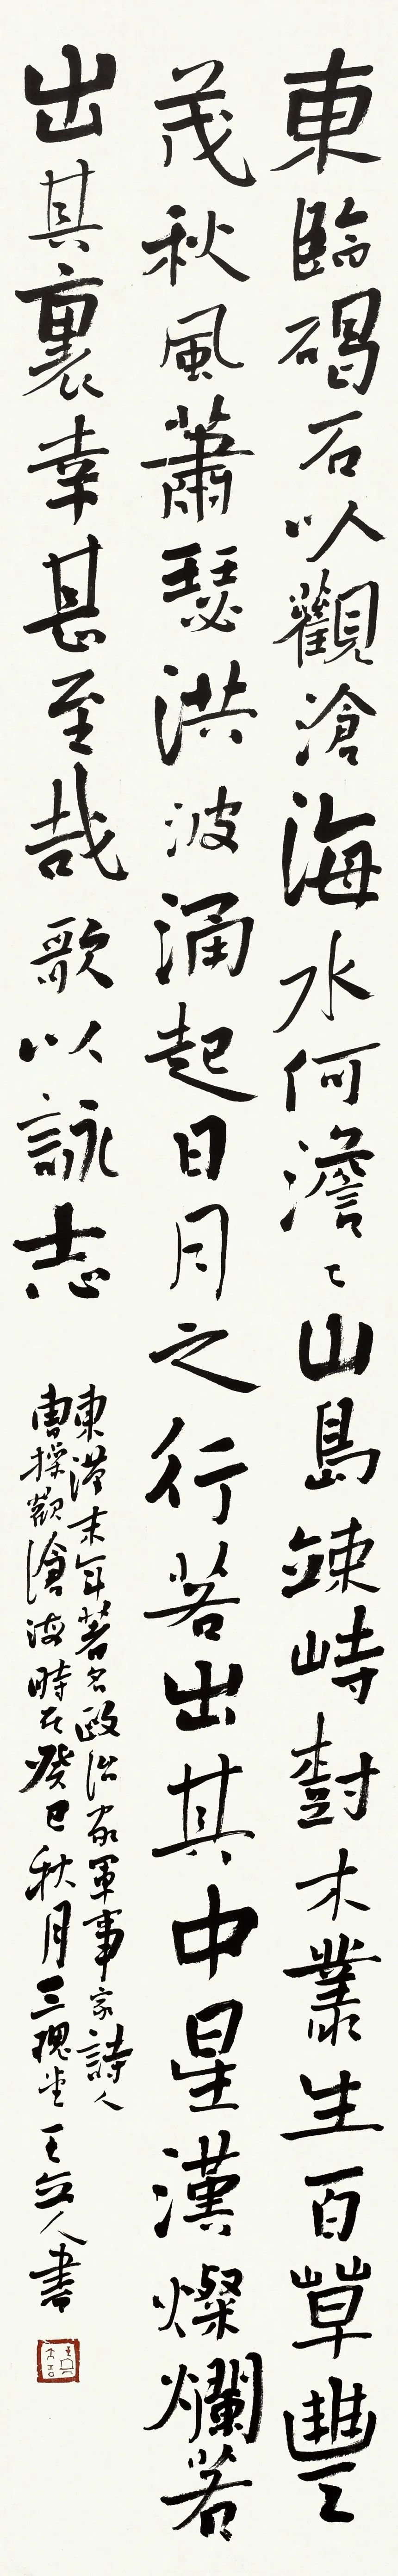 東臨碣石以觀滄海水何澹々山島竦峙樹木叢生百草豐
茂秋風蕭瑟洪波涌起日月之行若出其中星漢燦爛若
出其裏幸甚至哉歌以詠志
東漢末年著名政治家軍事家詩人
曹操觀滄海時在癸巳秋月三槐堂王立人書